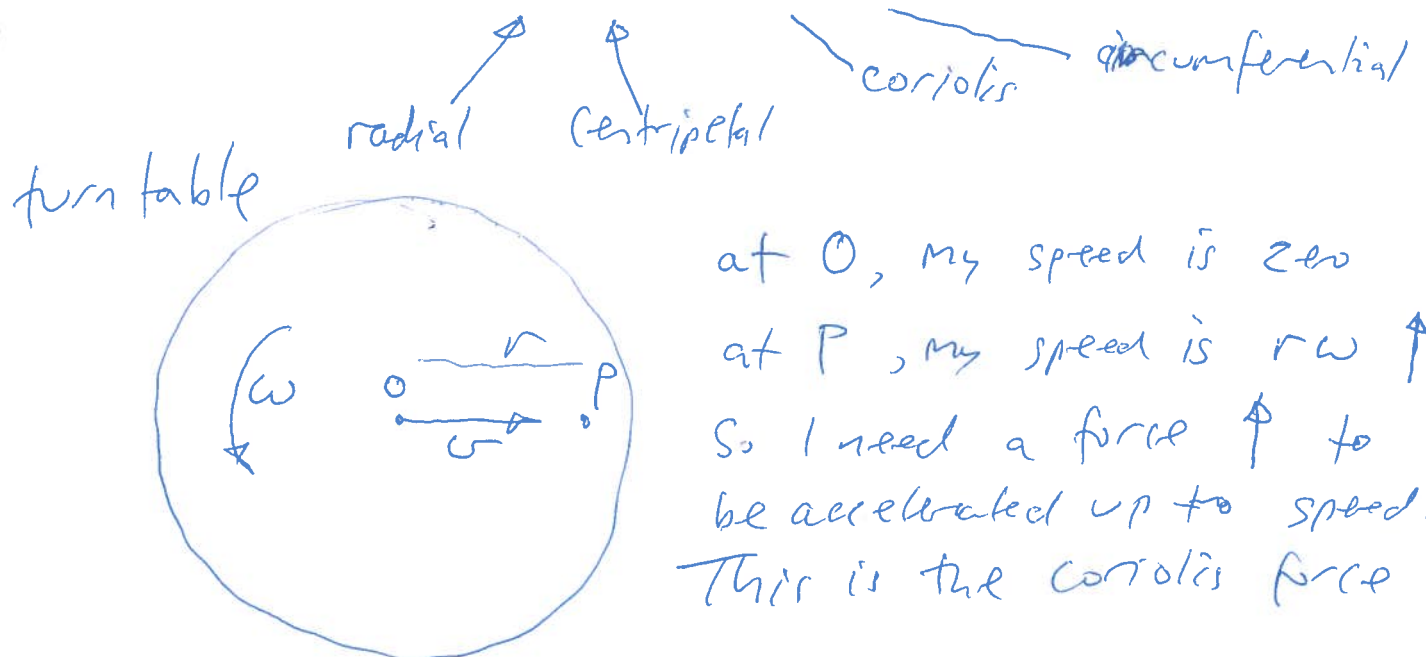 radial centripetal coriolis circumferential
turntable
at O, my speed is zero
at P, my speed is rω ↑
ω O r P
v
So I need a force ↑ to
be accelerated up to speed.
This is the coriolis force